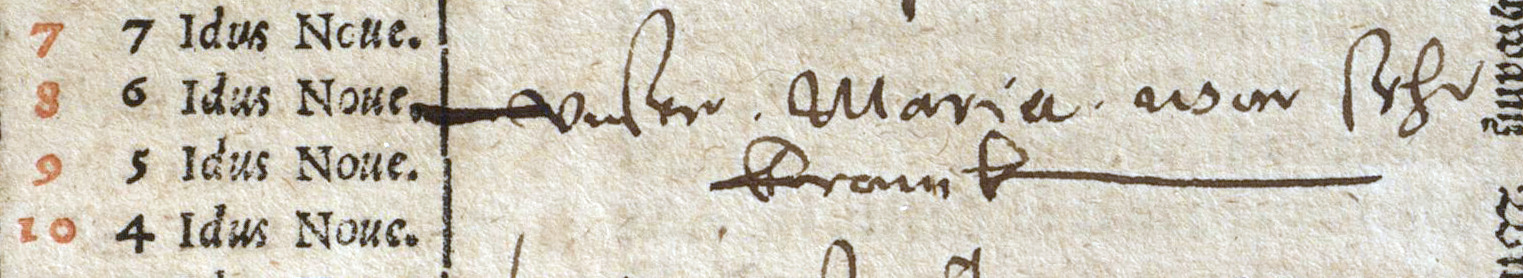 7 7 Idus Noue.
8 6 Idus Noue. vnser . Maria . war sehr
9 5 Idus Noue. kranck
10 4 Idus Noue.